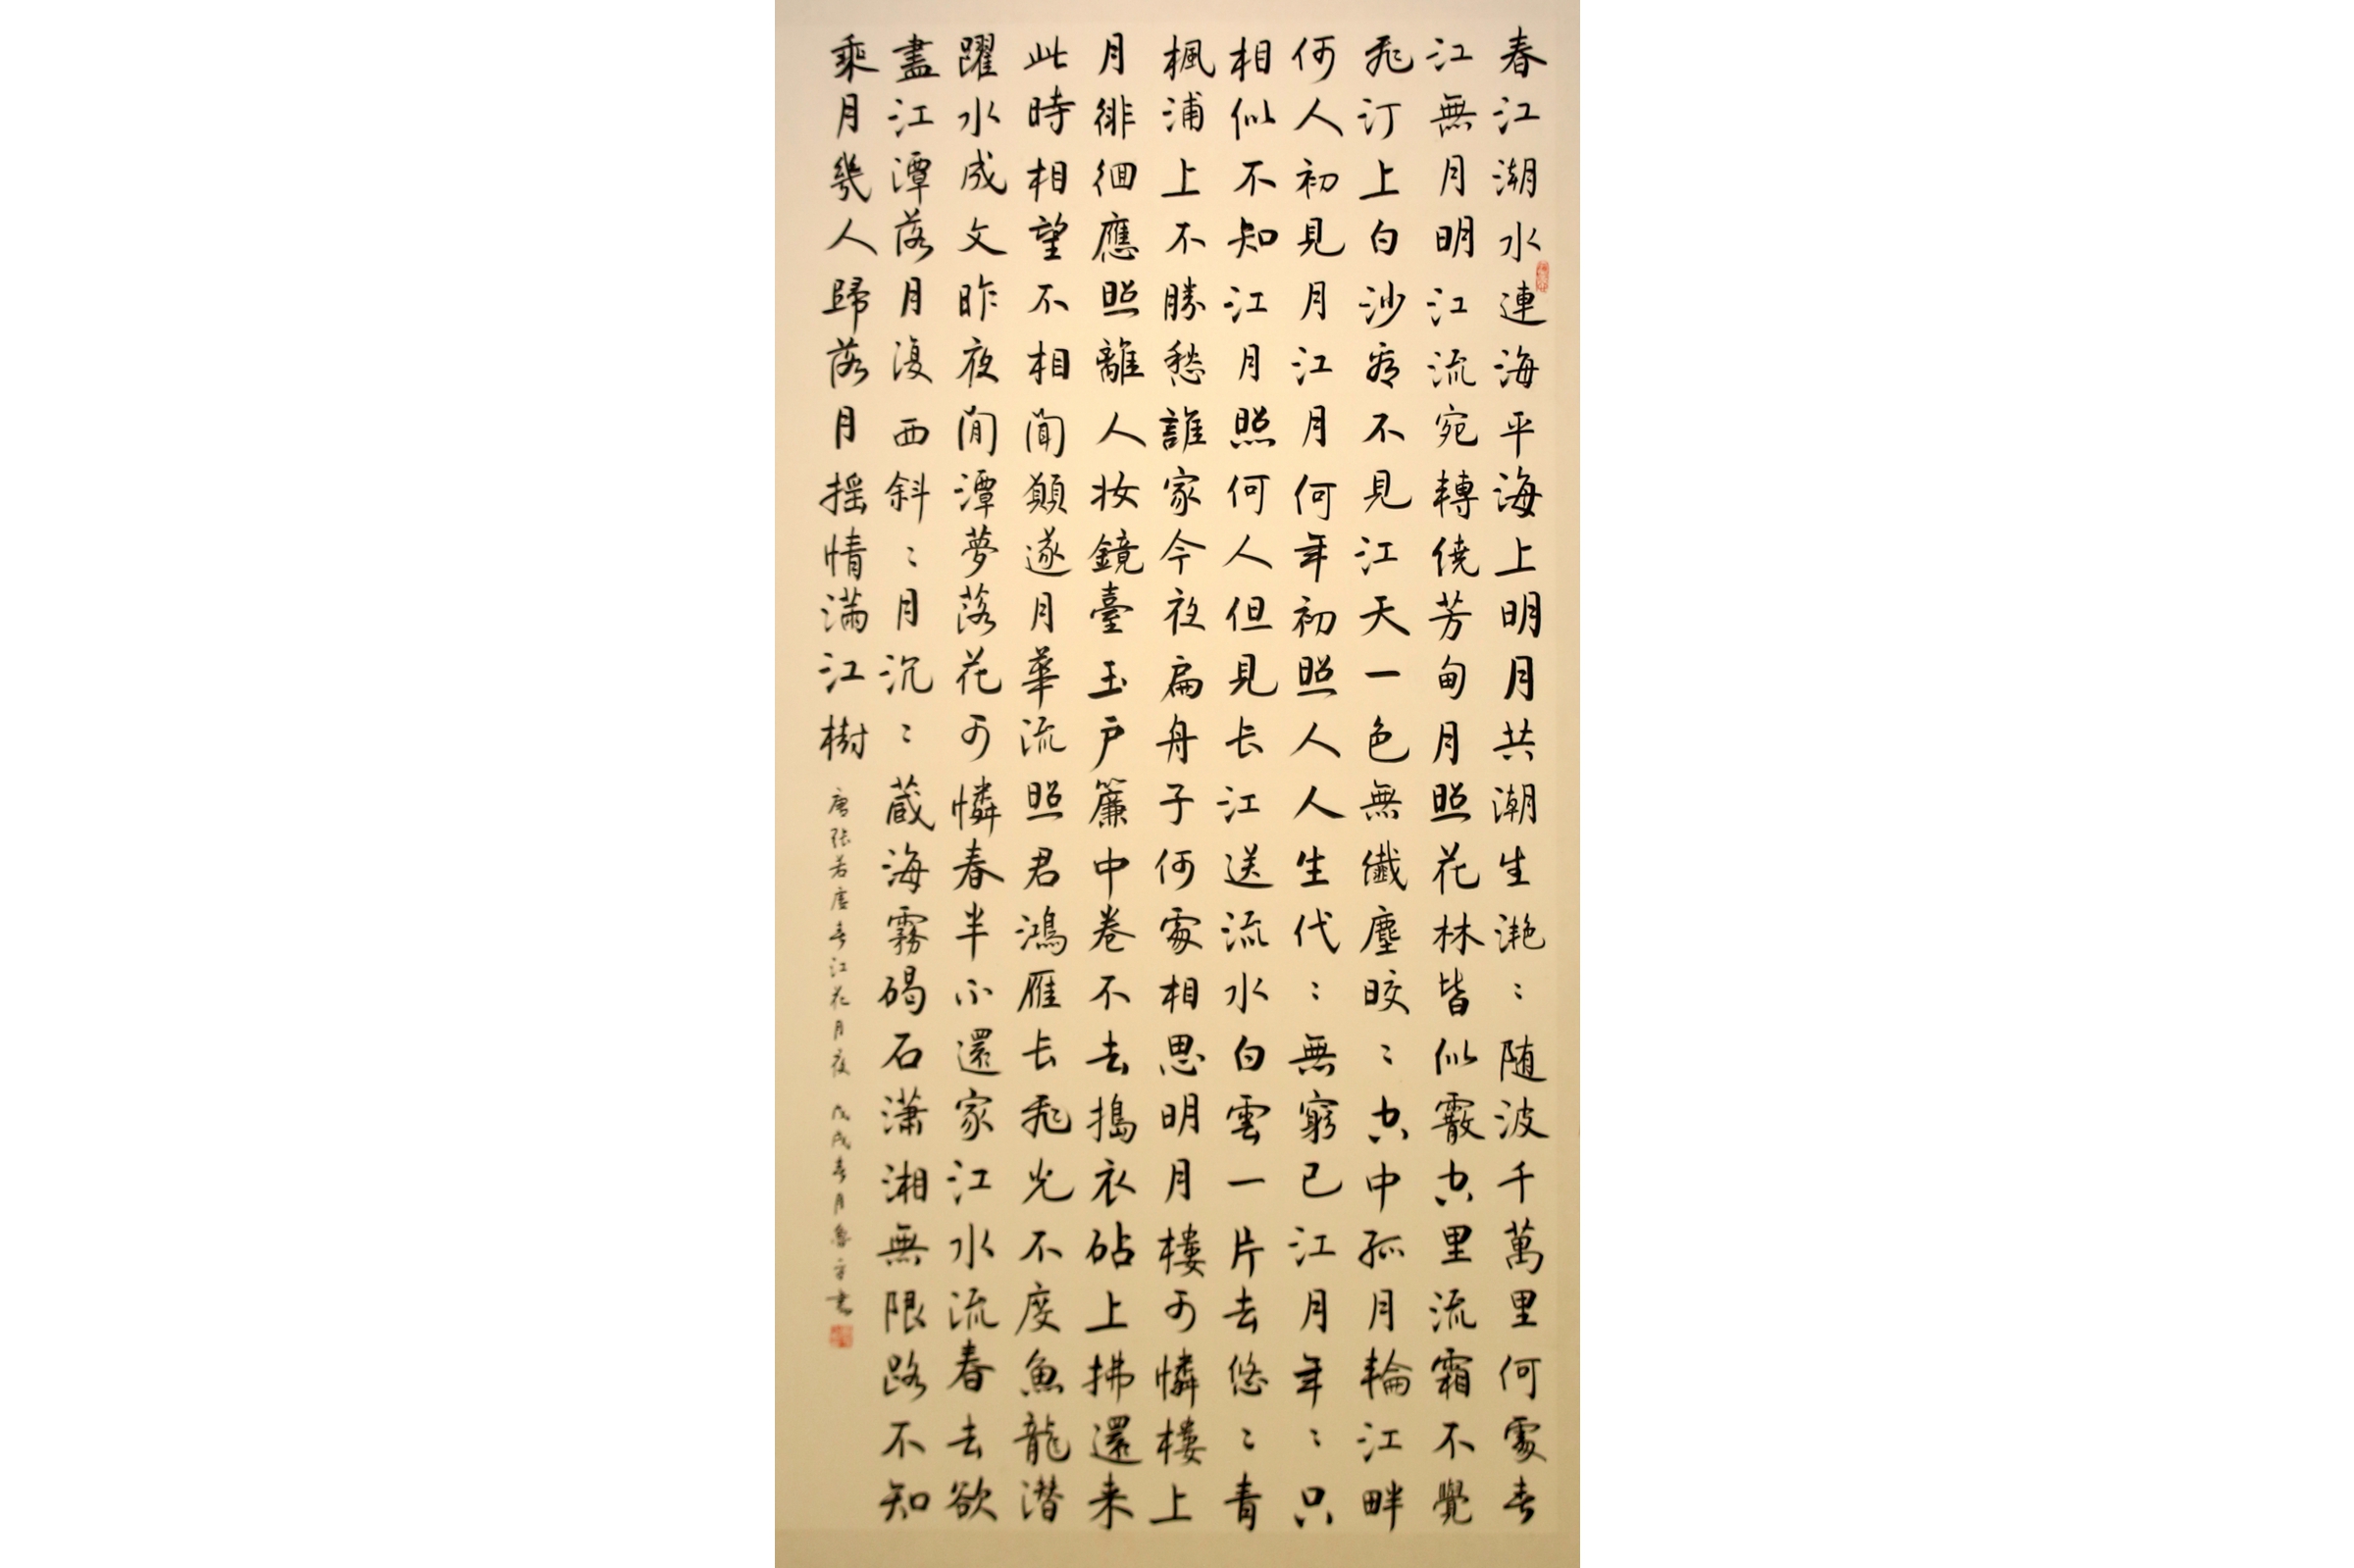 春江潮水連海平海上明月共潮生滟〻随波千萬里何處春
江無月明江流宛轉繞芳甸月照花林皆似霰空里流霜不覺
飛汀上白沙看不見江天一色無纖塵皎〻空中孤月輪江畔
何人初見月江月何年初照人人生代〻無窮已江月年〻只
相似不知江月照何人但見长江送流水白雲一片去悠〻青
楓浦上不勝愁誰家今夜扁舟子何處相思明月樓可憐樓上
月徘徊應照離人妝鏡臺玉户簾中卷不去搗衣砧上拂還来
此時相望不相聞願遂月華流照君鴻雁长飛光不度魚龍潜
躍水成文昨夜閒潭夢落花可憐春半不還家江水流春去欲
盡江潭落月復西斜〻月沉〻蔵海霧碣石潇湘無限路不知
乘月幾人歸落月摇情满江樹 唐張若虛春江花月夜 戊戌春月魯書